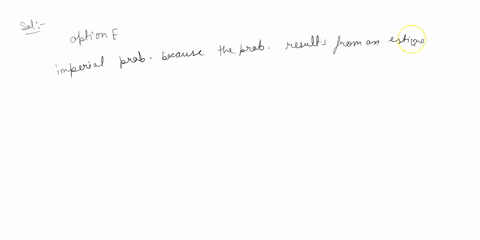 Sol:-
option E.
imperial prob. because the prob. results from an estima